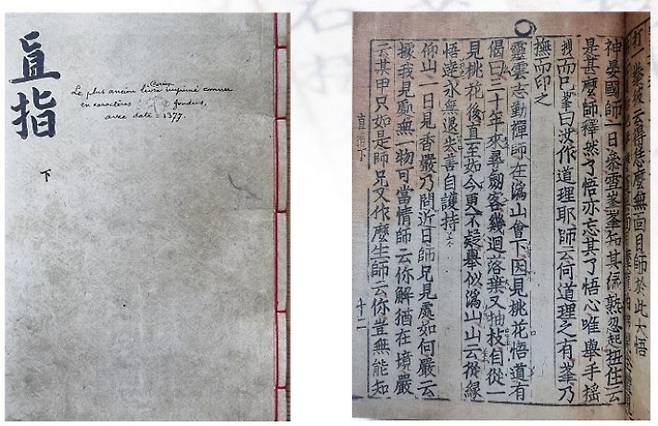 直指
下
Coréen
Le plus ancien livre imprimé connu
en caractères fondus,
avec date = 1377.
云得恁麽無面目師於此大悟
神晏國師一日參雪峯峯知其緣熟忽起搊住云
是甚麽師釋然了悟亦忘其了悟心唯擧手搖
拽而已峯曰汝作道理耶師云何道理之有峯乃
撫而印之
靈雲志勤禪師在潙山會下因見桃花悟道有
偈曰三十年來尋劒客幾迴落葉又抽枝自從一
見桃花後直至如今更不疑擧似潙山山云從緣
悟達永無退失善自護持
仰山一日見香嚴乃問近日師兄見處如何嚴云
據我見處無一物可當情師云你解猶在境嚴
云某甲只如是師兄又作麽生師云你豈無能知
直指下
十二